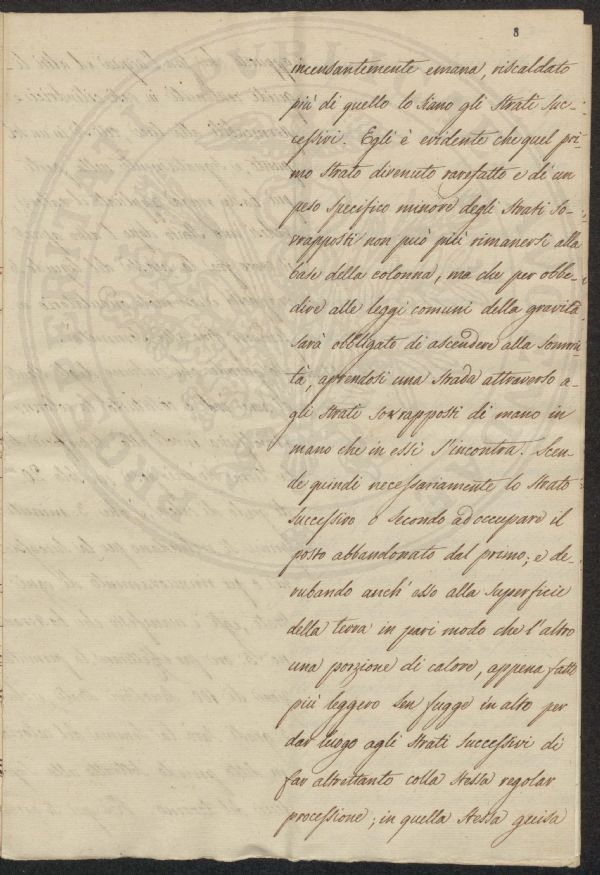 8
incessantemente emana, riscaldato
più di quello lo siano gli strati suc-
cessivi. Egli è evidente che quel pri-
mo strato divenuto rarefatto e di un
peso specifico minore degli strati so-
vrapposti non può più rimanersi alla
base della colonna, ma che per obbe-
dire alle leggi comuni della gravità
sarà obbligato di ascendere alla sommi-
tà, aprendosi una strada attraverso a-
gli strati sovrapposti di mano in
mano che in essi s'incontra. Scen-
de quindi necessariamente lo strato
successivo o secondo ad occupare il
posto abbandonato dal primo; e de-
rubando anch'esso alla superficie
della terra in pari modo che l'altro
una porzione di calore, appena fatto
più leggero sen fugge in alto per
dar luogo agli strati successivi di
far altrettanto colla stessa regolar
processione; in quella stessa guisa